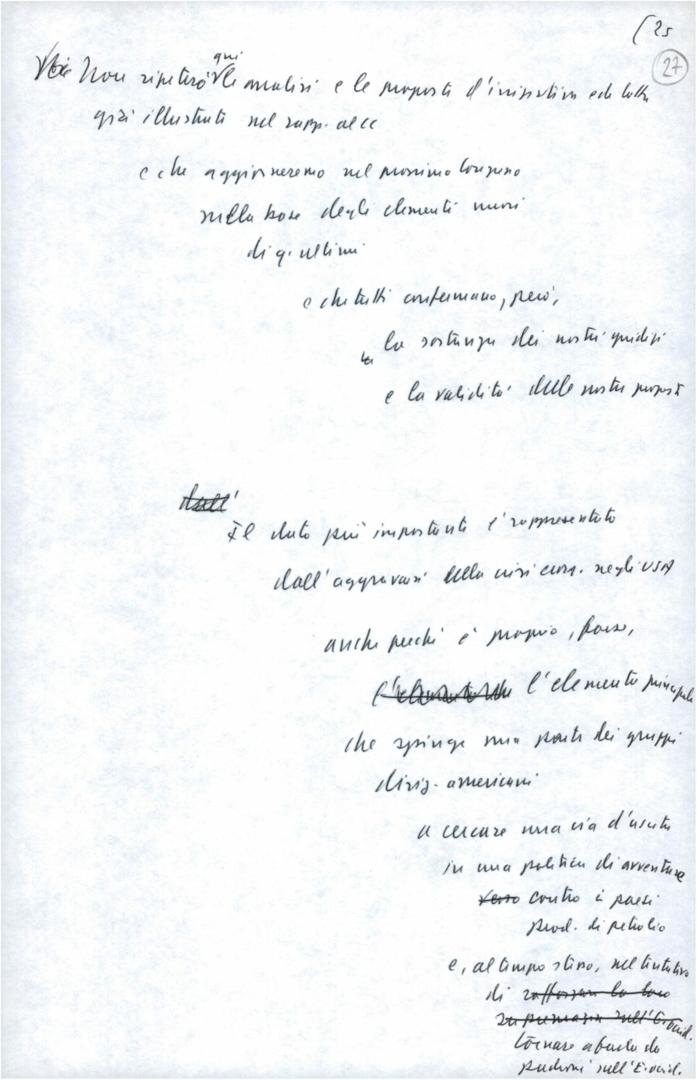 (25
27
Non ripeterò qui le analisi e le proposte d'iniziativa e di lotta
già illustrate nel rapp. al CC
e che aggiorneremo nel prossimo Congresso
sulla base degli elementi nuovi
di q. ultimi
e che tutti confermano, però,
la sostanza dei nostri giudizi
e la validità delle nostre proposte
dall'
Il dato più importante è rappresentato
dall'aggravarsi della crisi econ. negli USA
anche perché è proprio, forse,
l'elemento principale
che spinge una parte dei gruppi
dirig. americani
a cercare una via d'uscita
in una politica di avventure
verso contro i paesi
prod. di petrolio
e, al tempo stesso, nel tentativo
di rafforzare la loro
supremazia sull'E. occid.
tornare a farla da
padroni sull'E. occid.